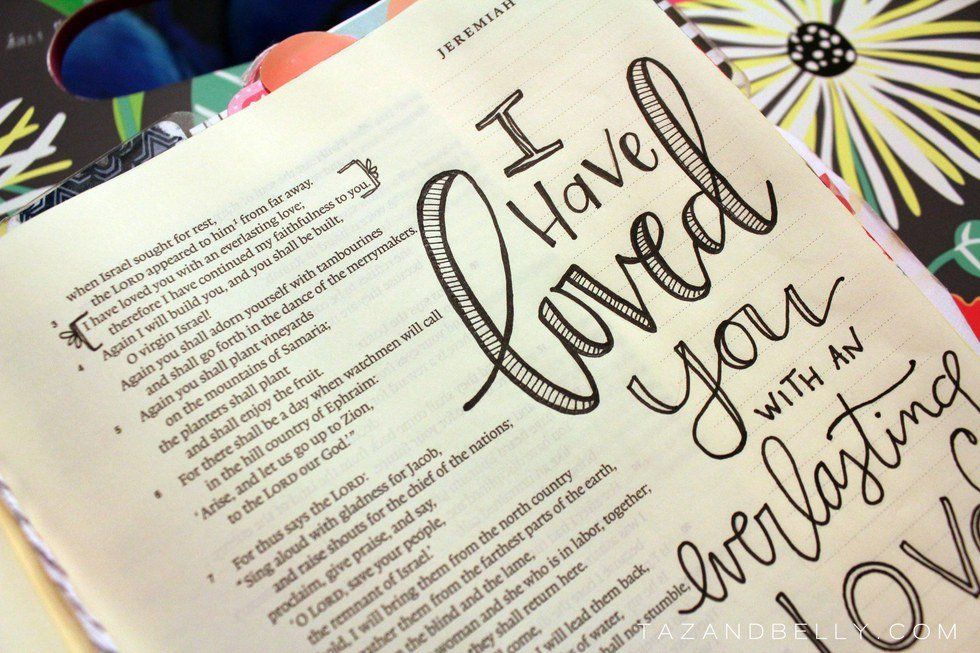 JEREMIAH
when Israel sought for rest,
the LORD appeared to him¹ from far away.
3 I have loved you with an everlasting love;
therefore I have continued my faithfulness to you.
4 Again I will build you, and you shall be built,
O virgin Israel!
Again you shall adorn yourself with tambourines
and shall go forth in the dance of the merrymakers.
5 Again you shall plant vineyards
on the mountains of Samaria;
the planters shall plant
and shall enjoy the fruit.
6 For there shall be a day when watchmen will call
in the hill country of Ephraim:
'Arise, and let us go up to Zion,
to the LORD our God.'”
7 For thus says the LORD:
“Sing aloud with gladness for Jacob,
and raise shouts for the chief of the nations;
proclaim, give praise, and say,
'O LORD, save your people,
the remnant of Israel.'
I will bring them from the north country
them from the farthest parts of the earth,
the blind and the lame,
woman and she who is in labor, together;
they shall return here.
come,
I will lead them back,
of water,
stumble,
I
Have
loved
you
WITH AN
everlasting
LOVE
TAZANDBELLY.COM